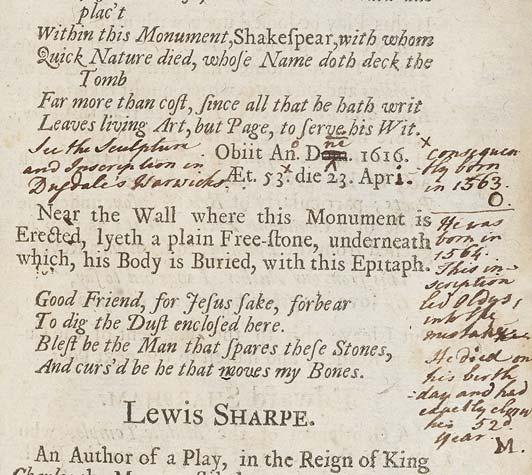 plac't
Within this Monument, Shakeſpear, with whom
Quick Nature died, whoſe Name doth deck the
Tomb
Far more than coſt, ſince all that he hath writ
Leaves living Art, but Page, to ſerve his Wit.
See the Sculpture
and Inscription in
Dugdale's Warwicks.
Obiit An. Dom. 1616.
Æt. 53. die 23. Apri.
x consequen
tly born
in 1563.
O.
Near the Wall where this Monument is
Erected, lyeth a plain Free-ſtone, underneath
which, his Body is Buried, with this Epitaph.
He was
born in
1564.
This in-
scription
led Oldys,
into the
mistake.
He died on
his birth
day and had
exactly
his 52d
year. M.
Good Friend, for Jeſus ſake, forbear
To dig the Duſt encloſed here.
Bleſt be the Man that ſpares theſe Stones,
And curs'd be he that moves my Bones.
Lewis SHARPE.
An Author of a Play, in the Reign of King